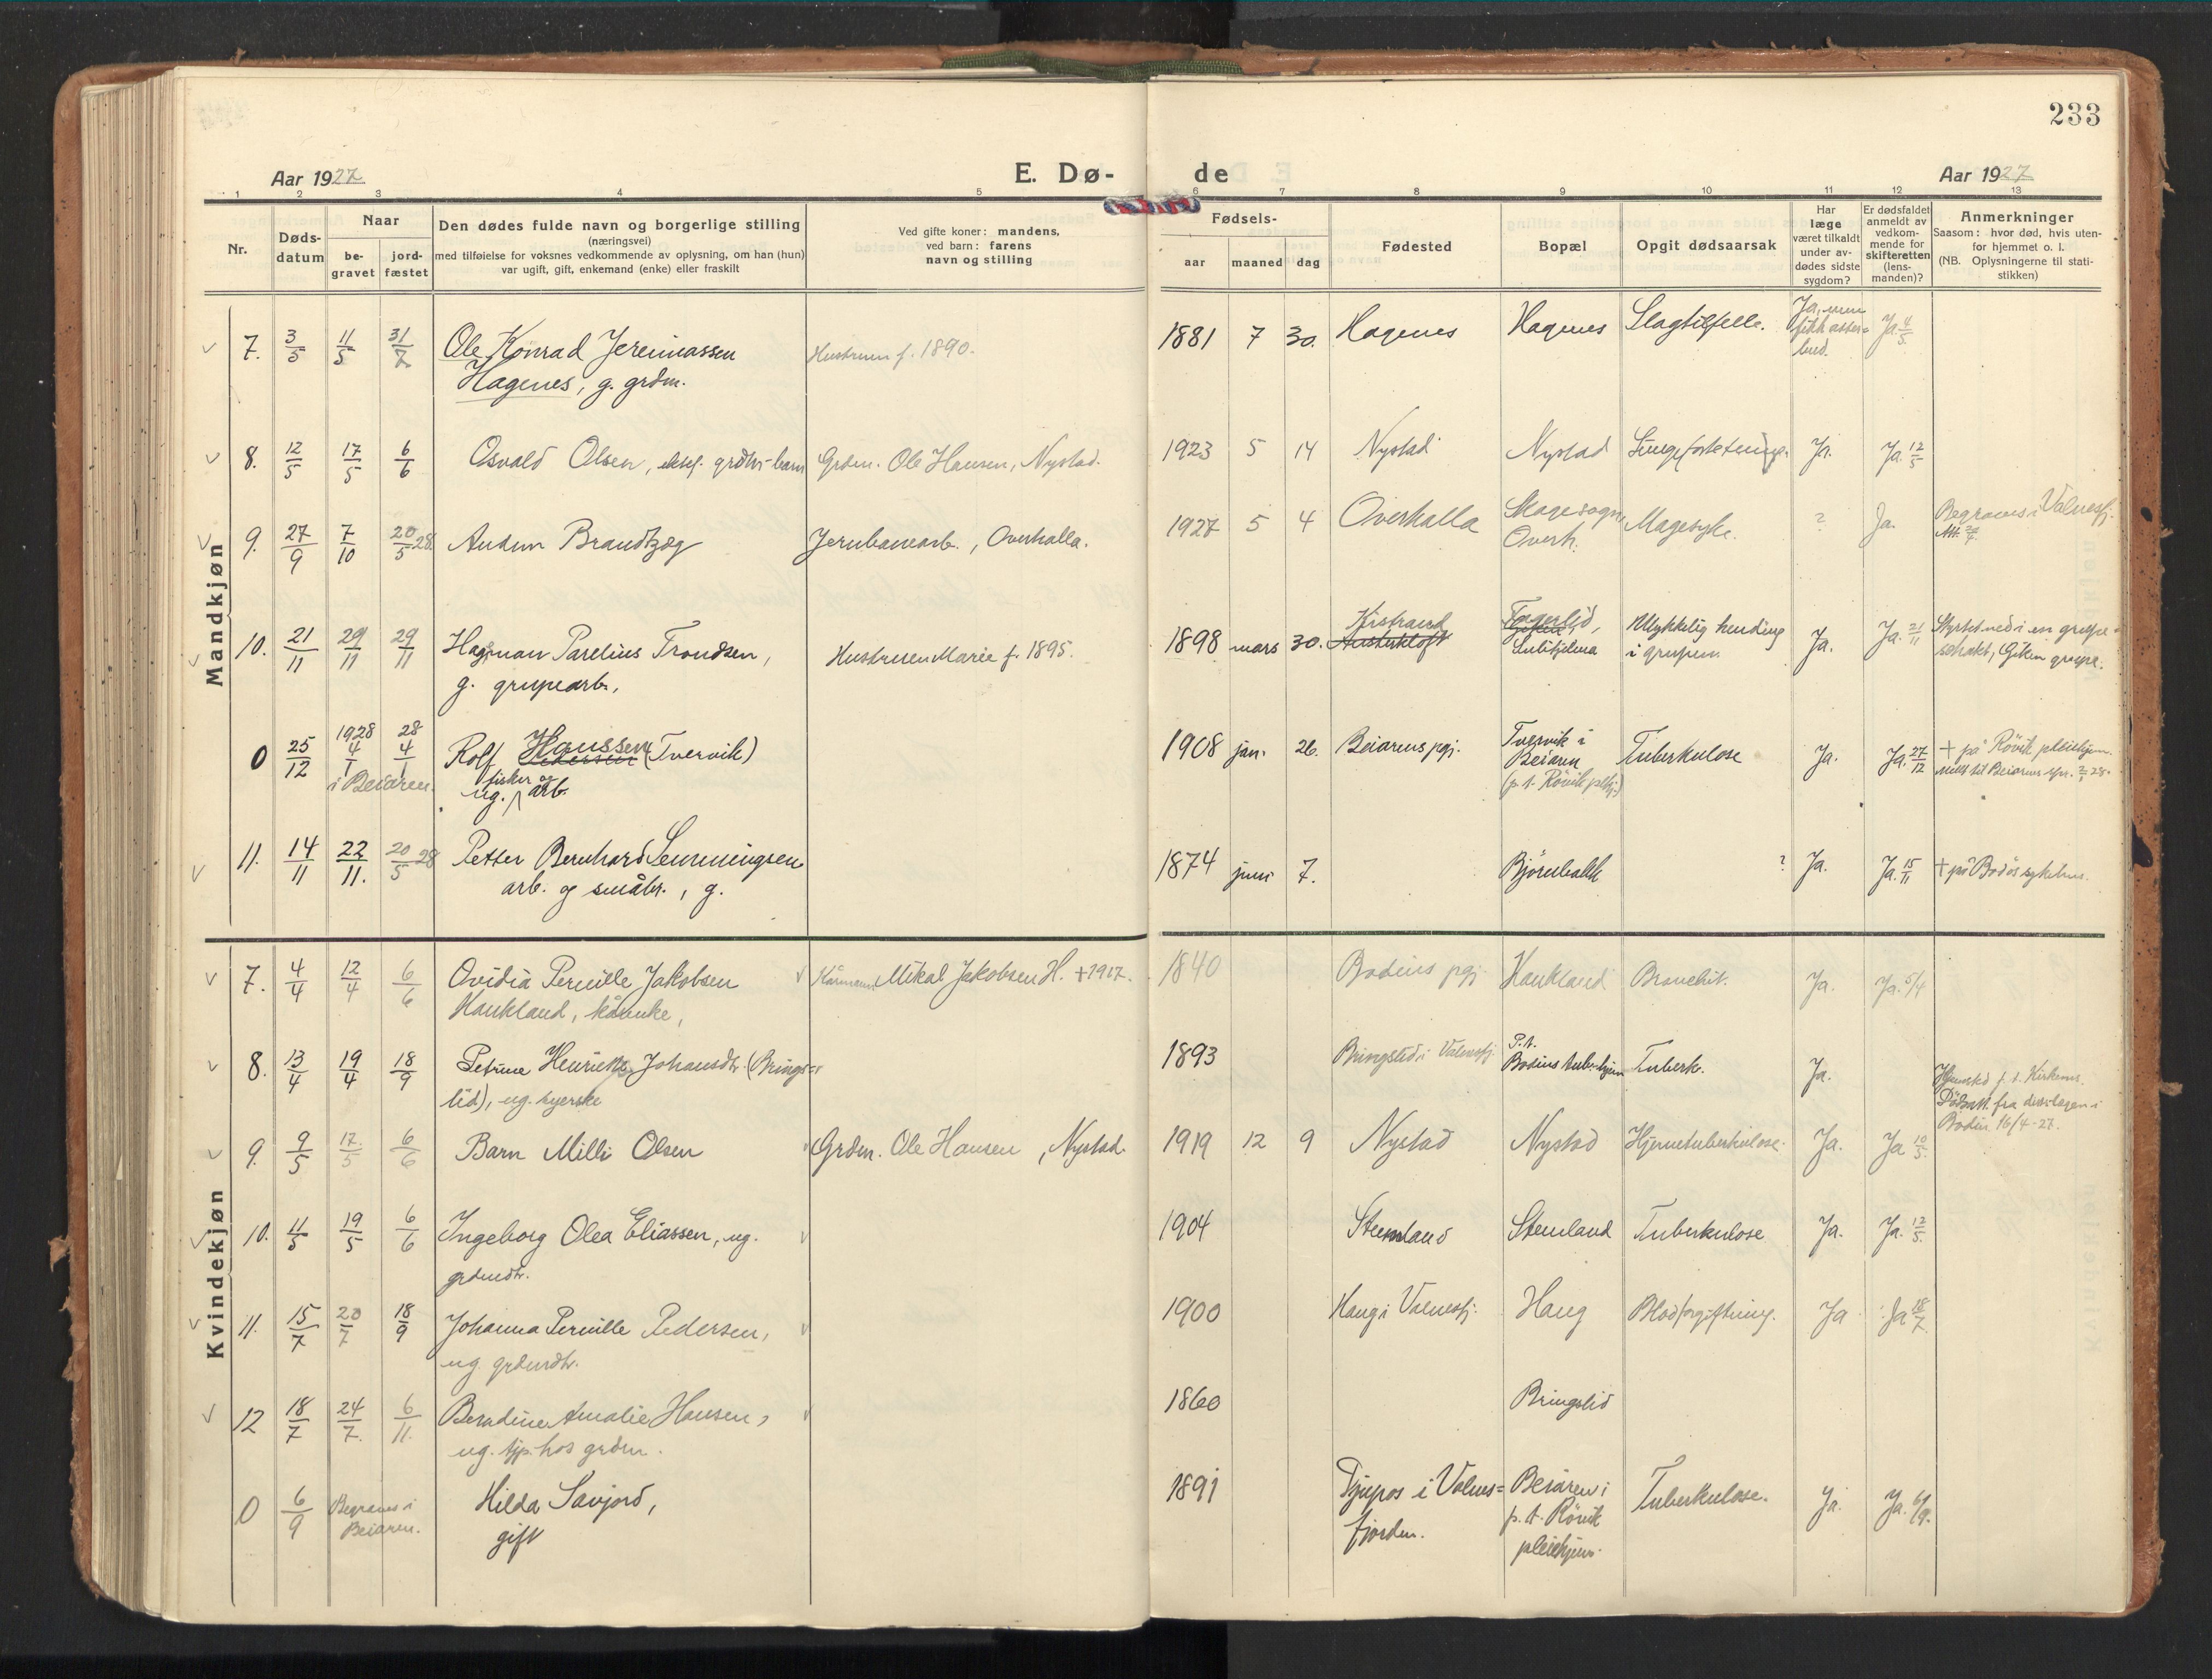 233
Aar 1927
E. Dø-
de
Aar 1927
1 2 3 4 5 6 7 8 9 10 11 12 13
Nr.
Døds-
datum
Naar
be-
gravet
jord-
fæstet
Den dødes fulde navn og borgerlige stilling
(næringsvei)
med tilføielse for voksnes vedkommende av oplysning, om han (hun)
var ugift, gift, enkemand (enke) eller fraskilt
Ved gifte koner: mandens,
ved barn: farens
navn og stilling
Fødsels-
aar maaned dag
Fødested
Bopæl
Opgit dødsaarsak
Har
læge
været tilkaldt
under av-
dødes sidste
sygdom?
Er dødsfaldet
anmeldt av
vedkom-
mende for
skifteretten
(lens-
manden)?
Anmerkninger
Saasom: hvor død, hvis uten-
for hjemmet o. l.
(NB. Oplysningerne til stati-
stikken)
Mandkjøn
7. 3/5 11/5 31/7 Ole Konrad Jeremiassen
Hagenes, g. grdm.
Hustruen f. 1890.
1881 7 30. Hagenes Hagenes Slagtilfelle.
Ja, men
Ja 4/5
8. 12/5 17/5 6/6 Osvald Olsen, grdm-barn Grdm. Ole Hansen, Nystad.
1923 5 14 Nystad Nystad Lungebetennelse. Ja. Ja. 12/5
9. 27/9 7/10 20/5 28. Audun Brandtzæg Jernbanearb., Overhalla.
1927 5 4 Overhalla Skage sogn,
Overh.
Magesyke. ? Ja.
Begraves i Valnesfj.
10. 21/11 29/11 29/11 Hagman Parelius Trondsen,
g. grupearb.,
Hustruen Marie f. 1895.
1898 mars 30. Kistrand
Fagerlid,
Sulitjelma
Ulykkelig hending
i grupen.
Ja. Ja. 21/11
Styrtet ned i en grupe-
schakt, Giken grupe.
0 25/12 1928 4/1 28 4/1
i Beiaren.
Rolf Hanssen (Tvervik)
fisker og
ug. arb.
1908 jan. 26. Beiarens pgj. Tvervik i
Beiaren
(p. t. Røvik pleiehj.)
Tuberkulose Ja. Ja. 27/12
+ på Røvik pleiehjem.
11. 14/11 22/11. 20/5 28 Petter Bernhard Lemmingsen
arb. og småbr., g.
1874 juni 7. Bjørnbakk ? Ja. Ja. 15/11 + på Bodøs sykehus.
Kvindekjøn
7. 4/4 12/4 6/6 Ovidia Pernille Jakobsen
Haukland, kårenke,
Kårmann Mikal Jakobsen H. +1917.
1840 Bodins pgj. Haukland Bronchit. Ja. Ja. 5/4
8. 13/4 19/4 18/9 Petrine Henrikke Johansdtr. (Brings-
lid), ug. syerske
1893 Bringslid i Valnesfj. P.t.
Bodins tub.hjem Tuberk. Ja.
Hjemsted f. t. Kirkenes.
Dødsatt. fra distr.legen i
Bodin 16/4-27.
9. 9/5 17/5 6/6 Barn Milli Olsen Grdm. Ole Hansen, Nystad.
1919 12 9 Nystad Nystad Hjernetuberkulose. Ja. Ja 10/5.
10. 11/5 19/5 6/6 Ingeborg Olea Eliassen, ug.
grdmdtr.
1904 Stemland Stemland Tuberkulose Ja. Ja. 12/5.
11. 15/7 20/7 18/9 Johanna Pernille Pedersen,
ug. grdmdtr.
1900 Haug i Valnesfj. Haug Blodforgiftning. Ja Ja 18/7.
12 18/7 24/7. 6/11. Berndine Amalie Hansen,
ug. tjp. hos grdm.
1860 Bringslid
0 6/9 Begraves i
Beiaren.
Hilda Savjord,
gift
1891 Djupos i Valnes-
fjorden.
Beiaren i
p. t. Røvik
pleiehjem.
Tuberkulose. Ja. Ja. 6/9.